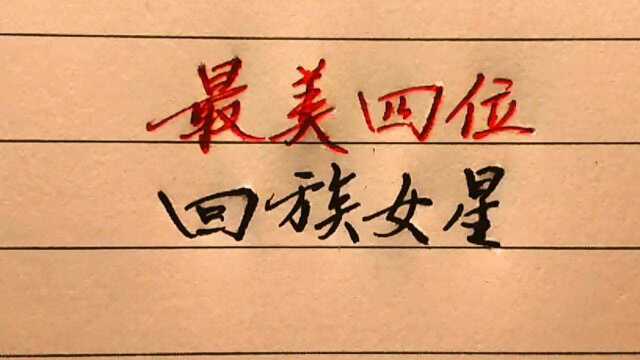 最美四位
回族女星